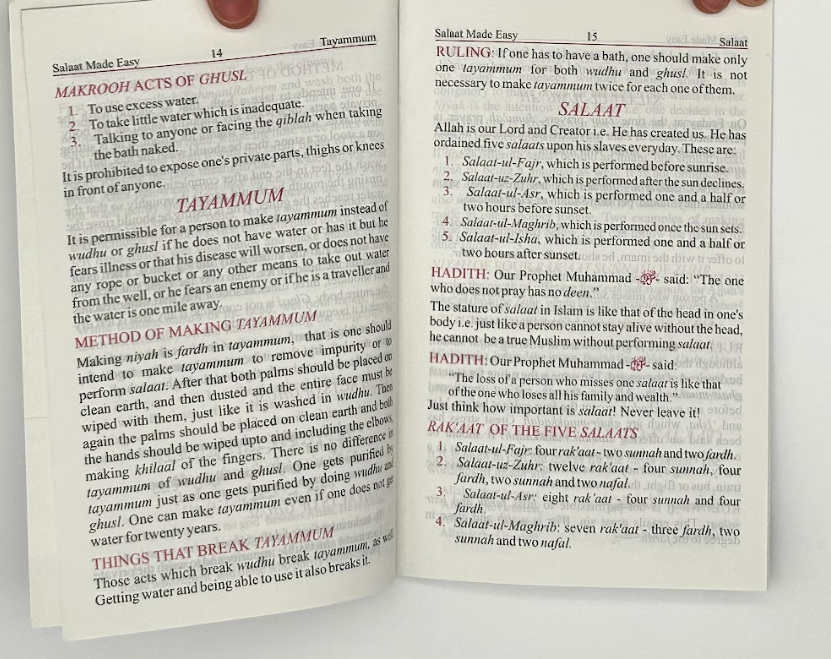 Salaat Made Easy 14 Tayammum
MAKROOH ACTS OF GHUSL
1. To use excess water.
2. To take little water which is inadequate.
3. Talking to anyone or facing the qiblah when taking
the bath naked.
It is prohibited to expose one's private parts, thighs or knees
in front of anyone.
TAYAMMUM
It is permissible for a person to make tayammum instead of
wudhu or ghusl if he does not have water or has it but he
fears illness or that his disease will worsen, or does not have
any rope or bucket or any other means to take out water
from the well, or he fears an enemy or if he is a traveller and
the water is one mile away.
METHOD OF MAKING TAYAMMUM
Making niyah is fardh in tayammum; that is one should
intend to make tayammum to remove impurity or to
perform salaat. After that both palms should be placed on
clean earth, and then dusted and the entire face must be
wiped with them, just like it is washed in wudhu. Then
again the palms should be placed on clean earth and both
the hands should be wiped upto and including the elbows,
making khilaal of the fingers. There is no difference in
tayammum of wudhu and ghusl. One gets purified by
tayammum just as one gets purified by doing wudhu and
ghusl. One can make tayammum even if one does not get
water for twenty years.
THINGS THAT BREAK TAYAMMUM
Those acts which break wudhu break tayammum, as well.
Getting water and being able to use it also breaks it.
Salaat Made Easy 15 Salaat
RULING: If one has to have a bath, one should make only
one tayammum for both wudhu and ghusl. It is not
necessary to make tayammum twice for each one of them.
SALAAT
Allah is our Lord and Creator i.e. He has created us. He has
ordained five salaats upon his slaves everyday. These are:
1. Salaat-ul-Fajr, which is performed before sunrise.
2. Salaat-uz-Zuhr, which is performed after the sun declines.
3. Salaat-ul-Asr, which is performed one and a half or
two hours before sunset.
4. Salaat-ul-Maghrib, which is performed once the sun sets.
5. Salaat-ul-Isha, which is performed one and a half or
two hours after sunset.
HADITH: Our Prophet Muhammad -ﷺ- said: “The one
who does not pray has no deen.”
The stature of salaat in Islam is like that of the head in one's
body i.e. just like a person cannot stay alive without the head,
he cannot be a true Muslim without performing salaat.
HADITH: Our Prophet Muhammad -ﷺ- said
“The loss of a person who misses one salaat is like that
of the one who loses all his family and wealth.”
Just think how important is salaat! Never leave it!
RAK'AAT OF THE FIVE SALAATS
1. Salaat-ul-Fajr: four rak'aat - two sunnah and two fardh.
2. Salaat-uz-Zuhr: twelve rak'aat - four sunnah, four
fardh, two sunnah and two nafal.
3. Salaat-ul-Asr: eight rak'aat - four sunnah and four
fardh.
4. Salaat-ul-Maghrib: seven rak'aat - three fardh, two
sunnah and two nafal.